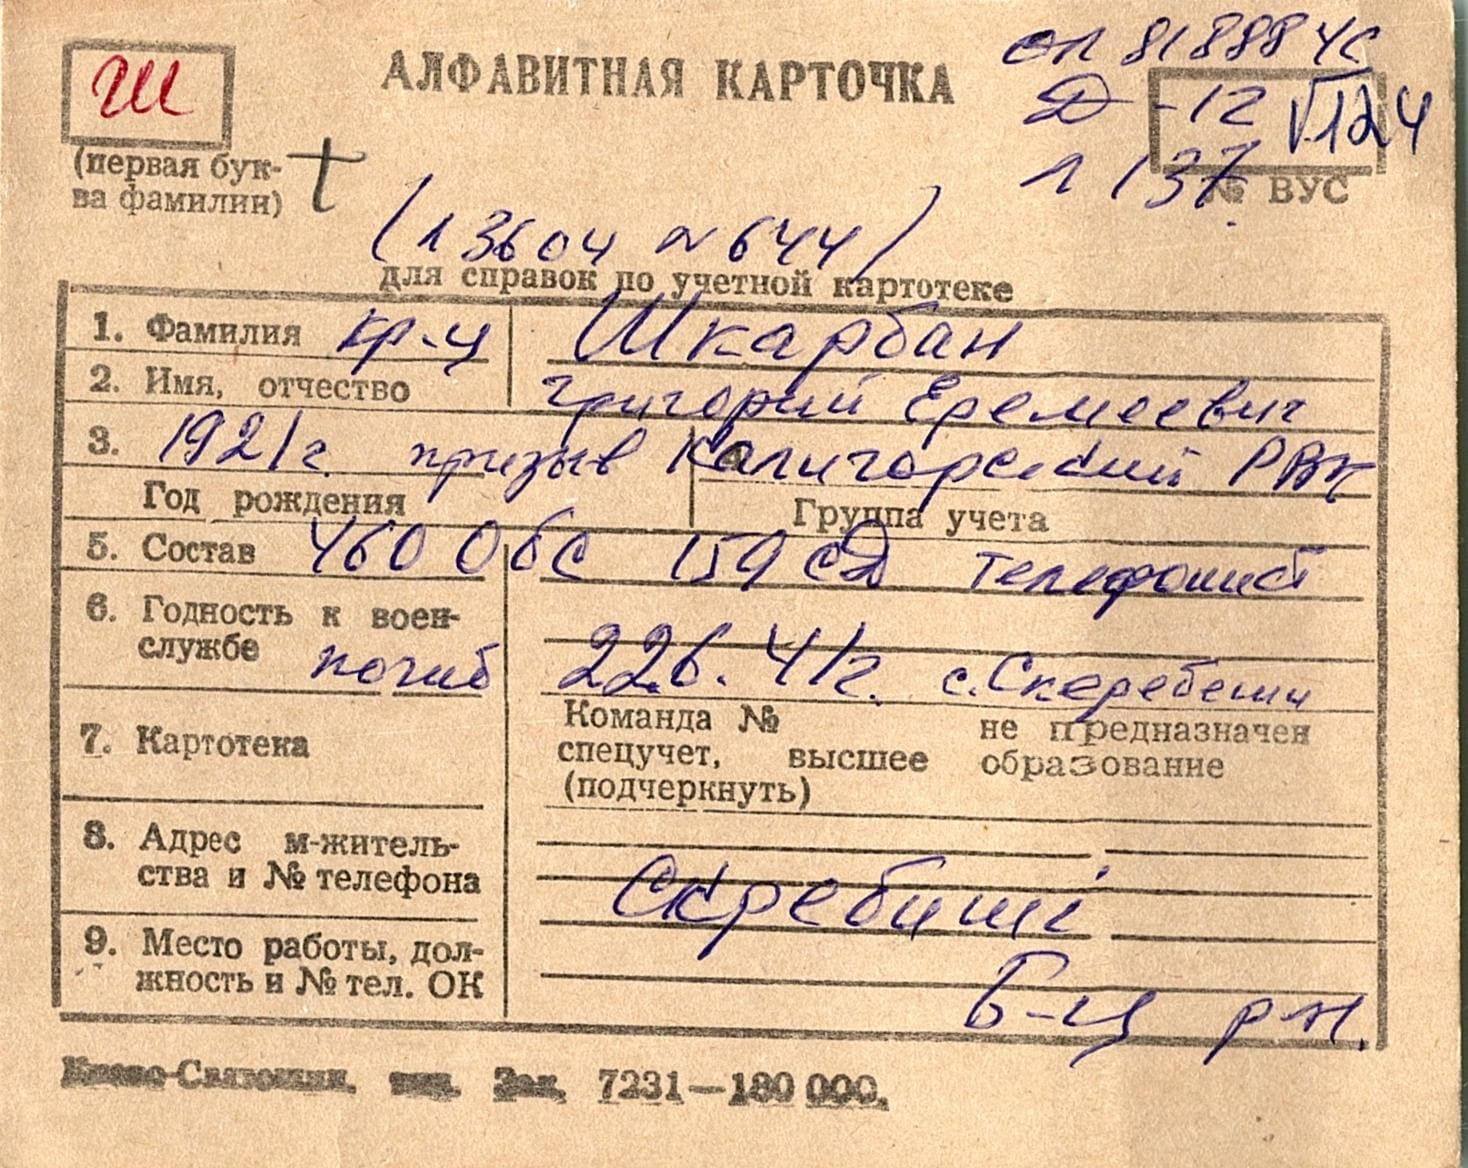 Ш
АЛФАВИТНАЯ КАРТОЧКА
оп 818884с
Д-12 √124
л 137
№ ВУС
(первая бук-
ва фамилии)
(л 3604 №644)
для справок по учетной картотеке
1. Фамилия кр-ц Шкарбан
2. Имя, отчество Григорий Еремеевич
3. 1921г. призыв Калигорский РВК
Год рождения Группа учета
5. Состав 460 Обс 159 сд телефонист
6. Годность к воен-
службе погиб 22.6.41г. с. Скеребеши
7. Картотека
Команда № не предназначен
спецучет, высшее образование
(подчеркнуть)
8. Адрес м-житель-
ства и № телефона
Скребиші
9. Место работы, дол-
жность и № тел. ОК
Б-Ц р-н.
Киево-Святошин. тип. Зак. 7231—180 000.